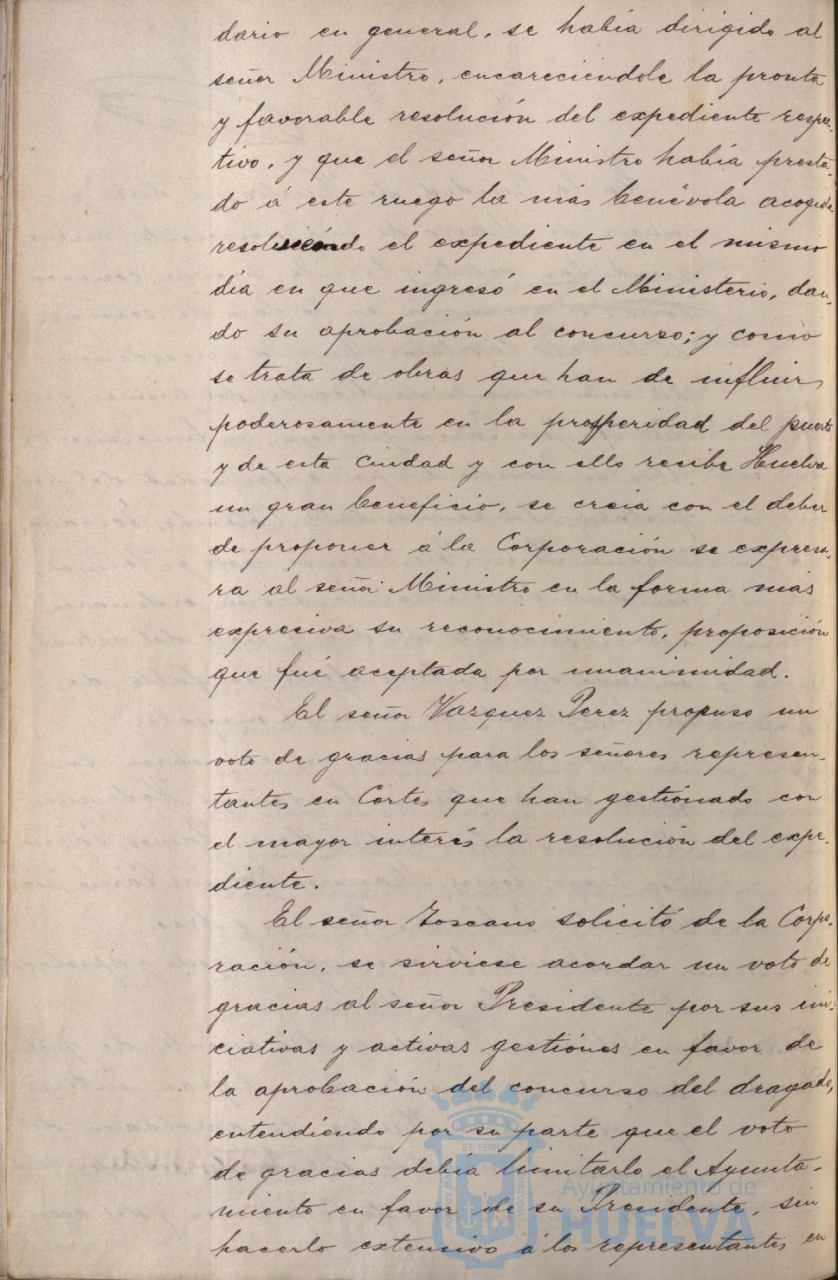 dario en general, se había dirigido al
señor Ministro, encareciéndole la pronta
y favorable resolución del expediente respec-
tivo, y que el señor Ministro había presta-
do á este ruego la más benévola acogida
resolviendo el expediente en el mismo
día en que ingresó en el Ministerio, dan-
do su aprobación al concurso; y como
se trata de obras que han de influir
poderosamente en la prosperidad del puerto
y de esta Ciudad y con ello recibe Huelva
un gran beneficio, se creia con el deber
de proponer á la Corporación se expresa-
ra al señor Ministro en la forma más
expresiva su reconocimiento, proposición
que fué aceptada por unanimidad.
El señor Vazquez Perez propuso un
voto de gracias para los señores represen-
tantes en Cortes que han gestionado con
el mayor interés la resolución del expe-
diente.
El señor Toscano solicitó de la Corpo-
ración, se sirviese acordar un voto de
gracias al señor Presidente por sus ini-
ciativas y activas gestiónes en favor de
la aprobación del concurso del dragado,
entendiendo por su parte que el voto
de gracias debía limitarlo el Ayunta-
miento en favor de su Presidente, sin
hacerlo extensivo á los representantes en
Ayuntamiento de
HUELVA